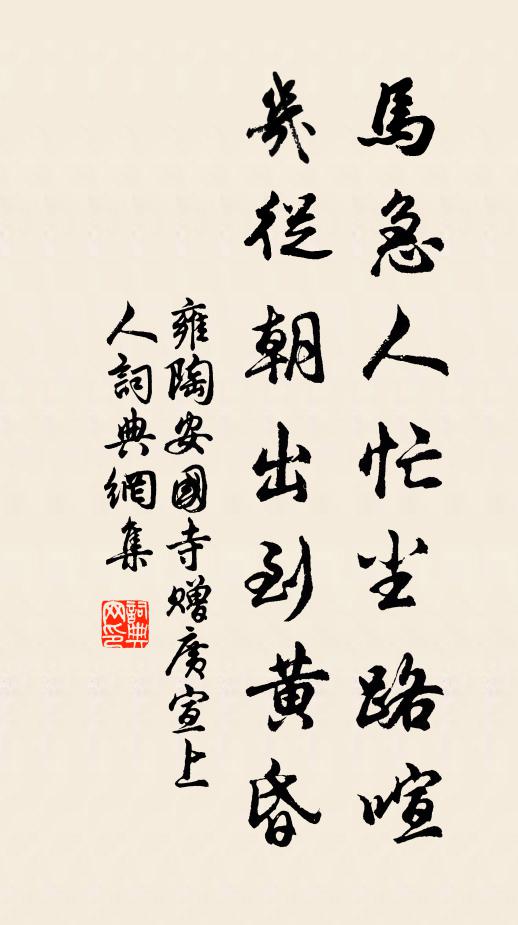 馬急人忙尘路喧
幾從朝出到黃昏
雍陶安國寺贈廣宣上
人詞典網集
詞典
网印